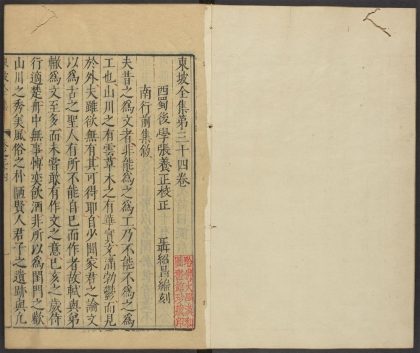 東坡全集第三十四卷
西蜀後學張養正校正
聶紹昌編刻
南行前集敘
夫昔之爲文者非能爲之爲工乃不能不爲之爲
工也山川之有雲草木之有華實充滿勃鬱而見
於外夫雖欲無有其可得耶自少聞家君之論文
以爲古之聖人有所不能自已而作者故軾與弟
轍爲文至多而未嘗敢有作文之意己亥之歲侍
行適楚舟中無事博奕飲酒非所以爲閨門之歡
山川之秀美風俗之朴陋賢人君子之遺跡與凡